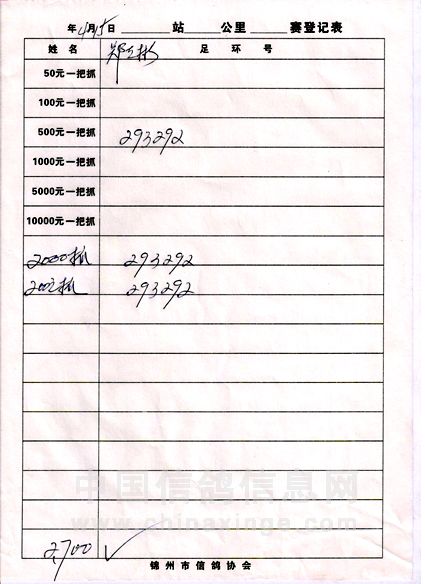 年4月15日 站 公里 赛登记表
姓名 足环号
50元一把抓
100元一把抓
500元一把抓 293292
1000元一把抓
5000元一把抓
10000元一把抓
2000抓 293292
200元抓 293292
中国信鸽信息网
www.chinaxinge.com
2,700 ✓
锦州市信鸽协会